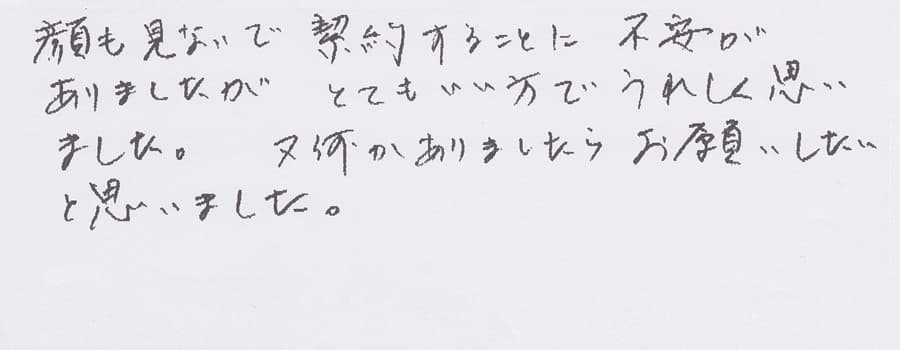 顔も見ないで 契約することに 不安が
ありましたが とてもいい方で うれしく思い
ました。 又何かありましたら お願いしたい
と思いました。